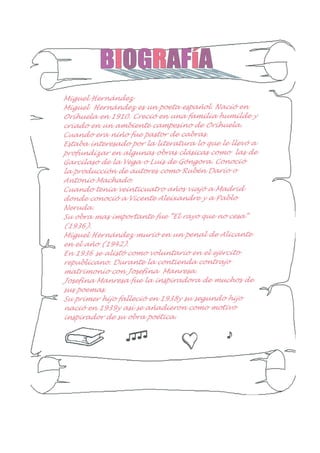 BIOGRAFíA
Miguel Hernández
Miguel Hernández es un poeta español. Nació en
Orihuela en 1910. Creció en una familia humilde y
criado en un ambiente campesino de Orihuela.
Cuando era niño fue pastor de cabras.
Estaba interesado por la literatura lo que le llevó a
profundizar en algunas obras clásicas como las de
Garcilaso de la Vega o Luis de Góngora. Conoció
la producción de autores como Rubén Darío o
Antonio Machado.
Cuando tenía veinticuatro años viajó a Madrid
donde conoció a Vicente Aleixandre y a Pablo
Neruda.
Su obra mas importante fue "El rayo que no cesa"
(1936).
Miguel Hernández murió en un penal de Alicante
en el año (1942).
En 1936 se alistó como voluntario en el ejército
republicano. Durante la contienda contrajo
matrimonio con Josefina Manresa.
Josefina Manresa fue la inspiradora de muchos de
sus poemas.
Su primer hijo falleció en 1938y su segundo hijo
nació en 1939y así se añadieron como motivo
inspirador de su obra poética.